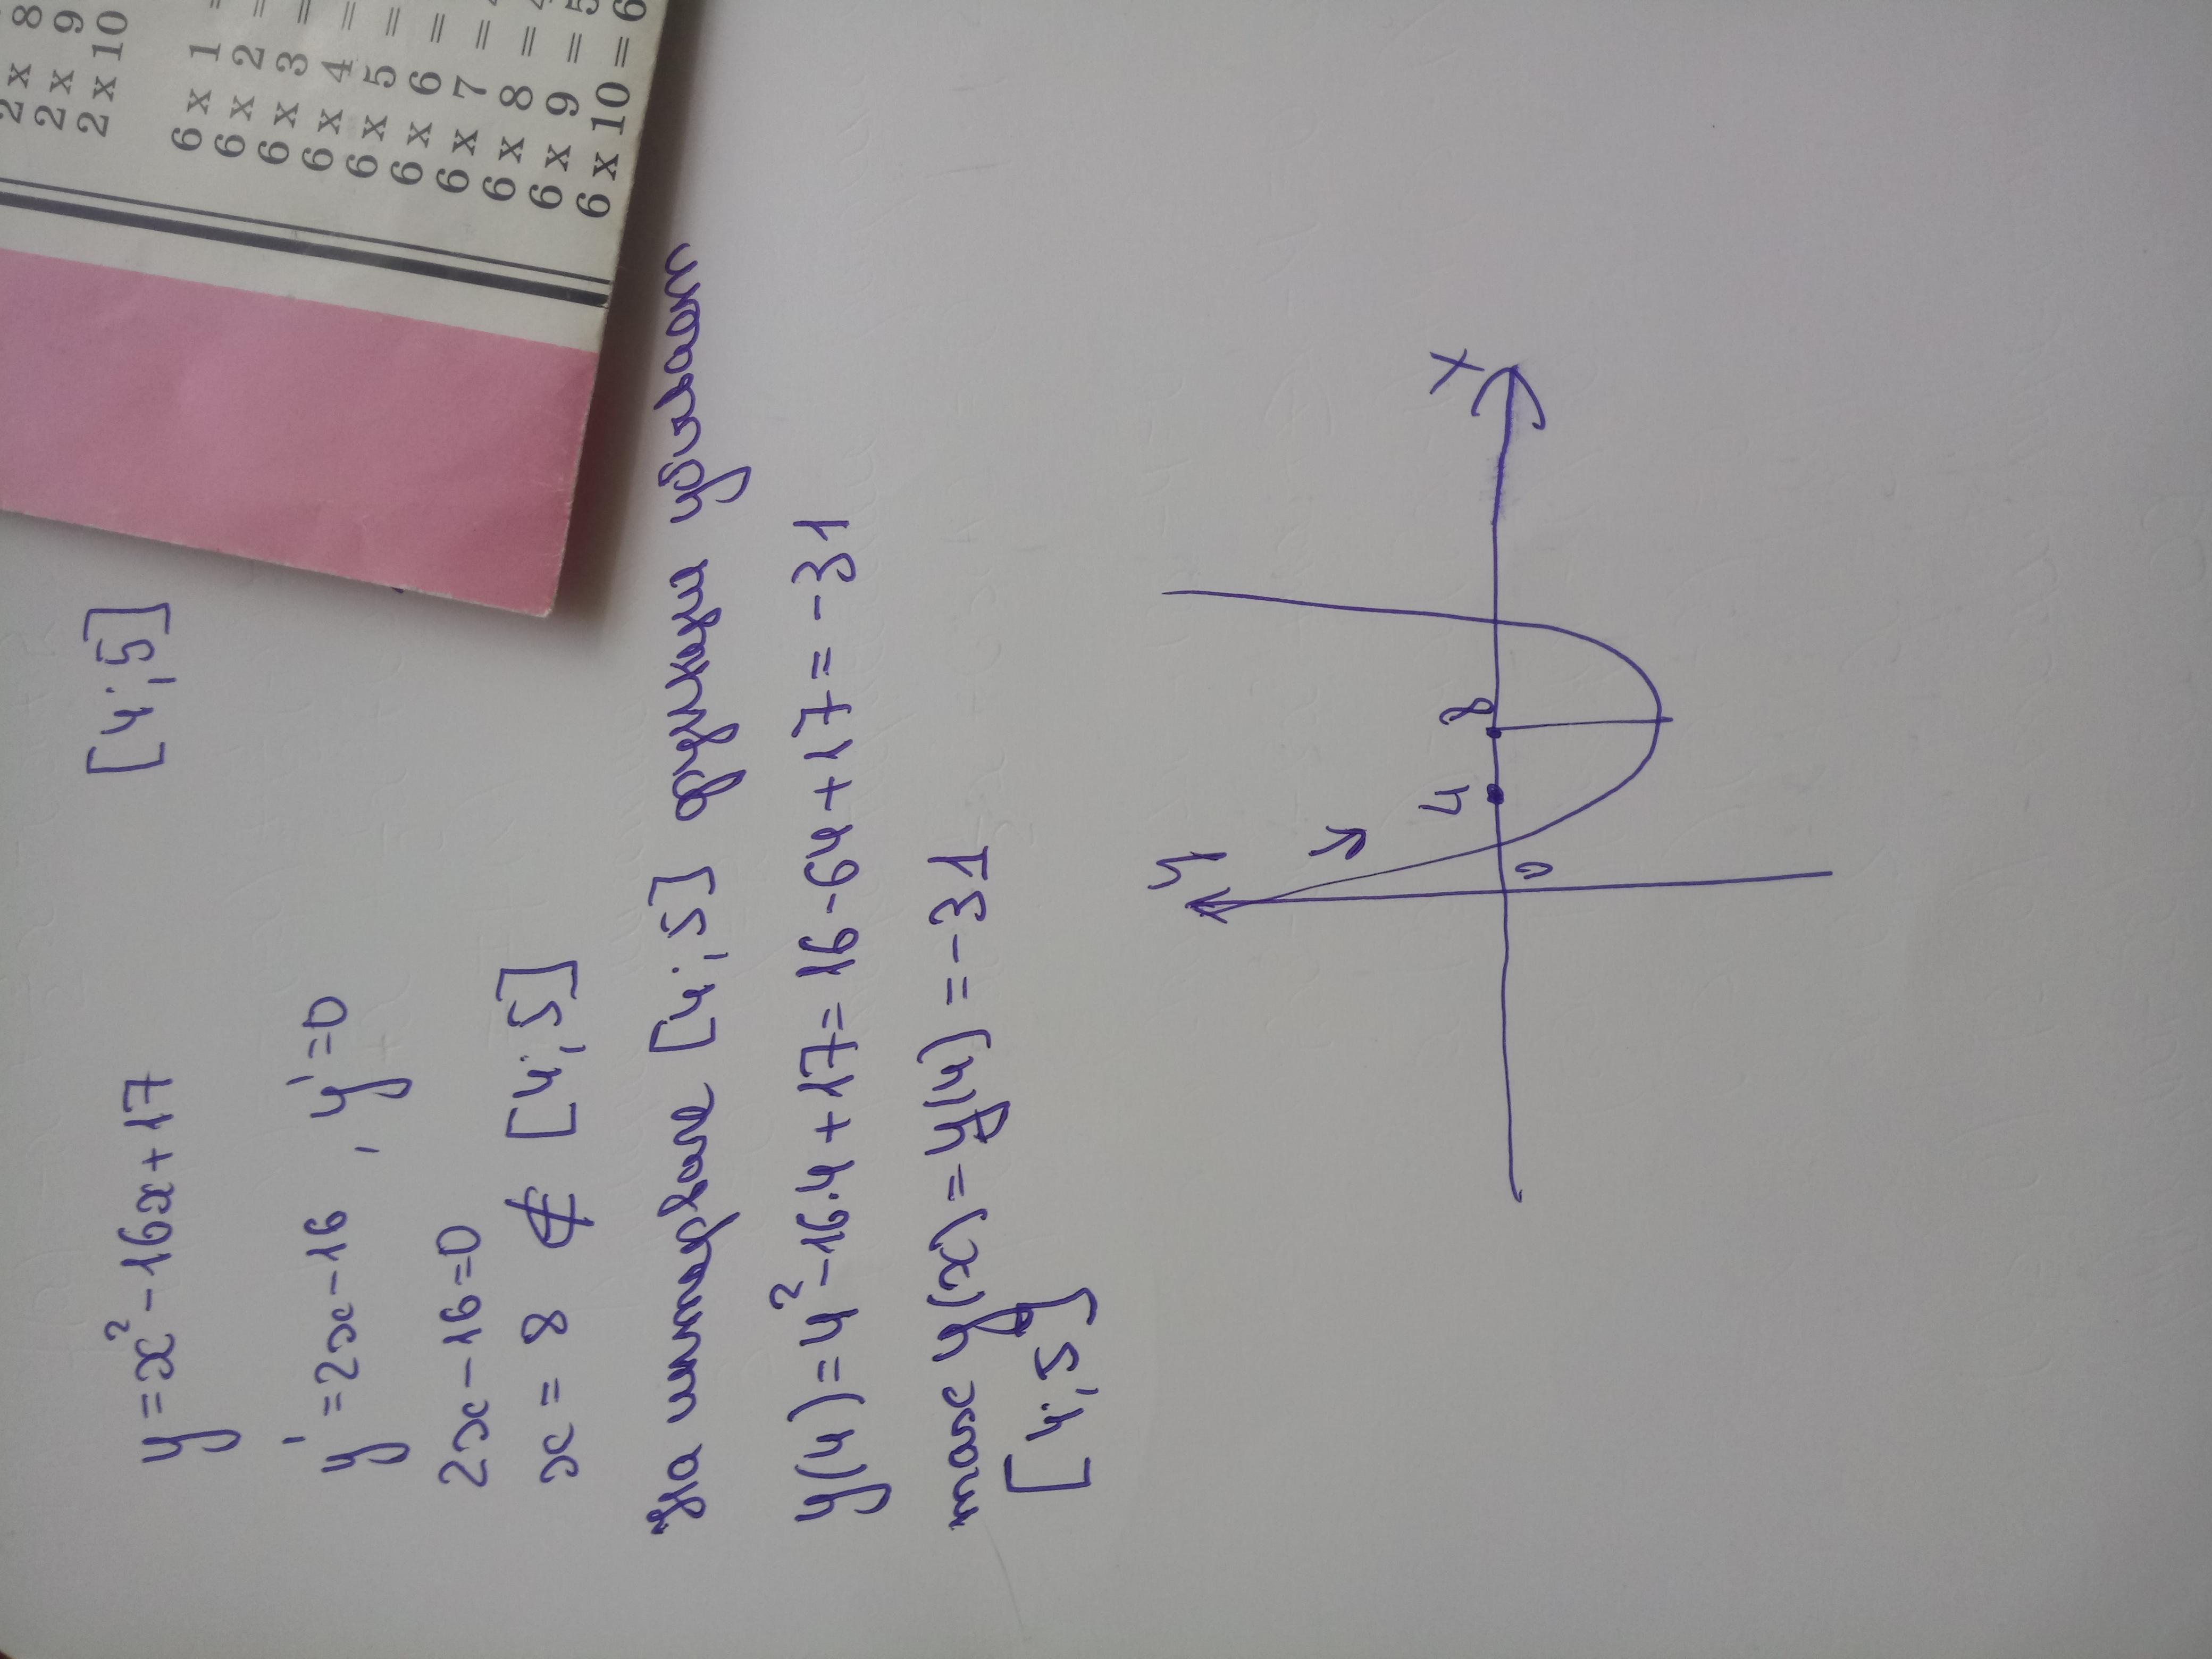 2 x 8
2 x 9
2 x 10
6 x 1 =
6 x 2 =
6 x 3 =
6 x 4 =
6 x 5 =
6 x 6 =
6 x 7 =
6 x 8 =
6 x 9 = 5
6 x 10 = 6
y = x² - 16x + 17 [4; 5]
y' = 2x - 16 , y' = 0
2x - 16 = 0
x = 8 ∉ [4; 5]
На отрезке [4; 5] функция убывает
y(4) = 4² - 16·4 + 17 = 16 - 64 + 17 = -31
max y(x) = y(4) = -31
[4; 5]
y
x
4
8
0